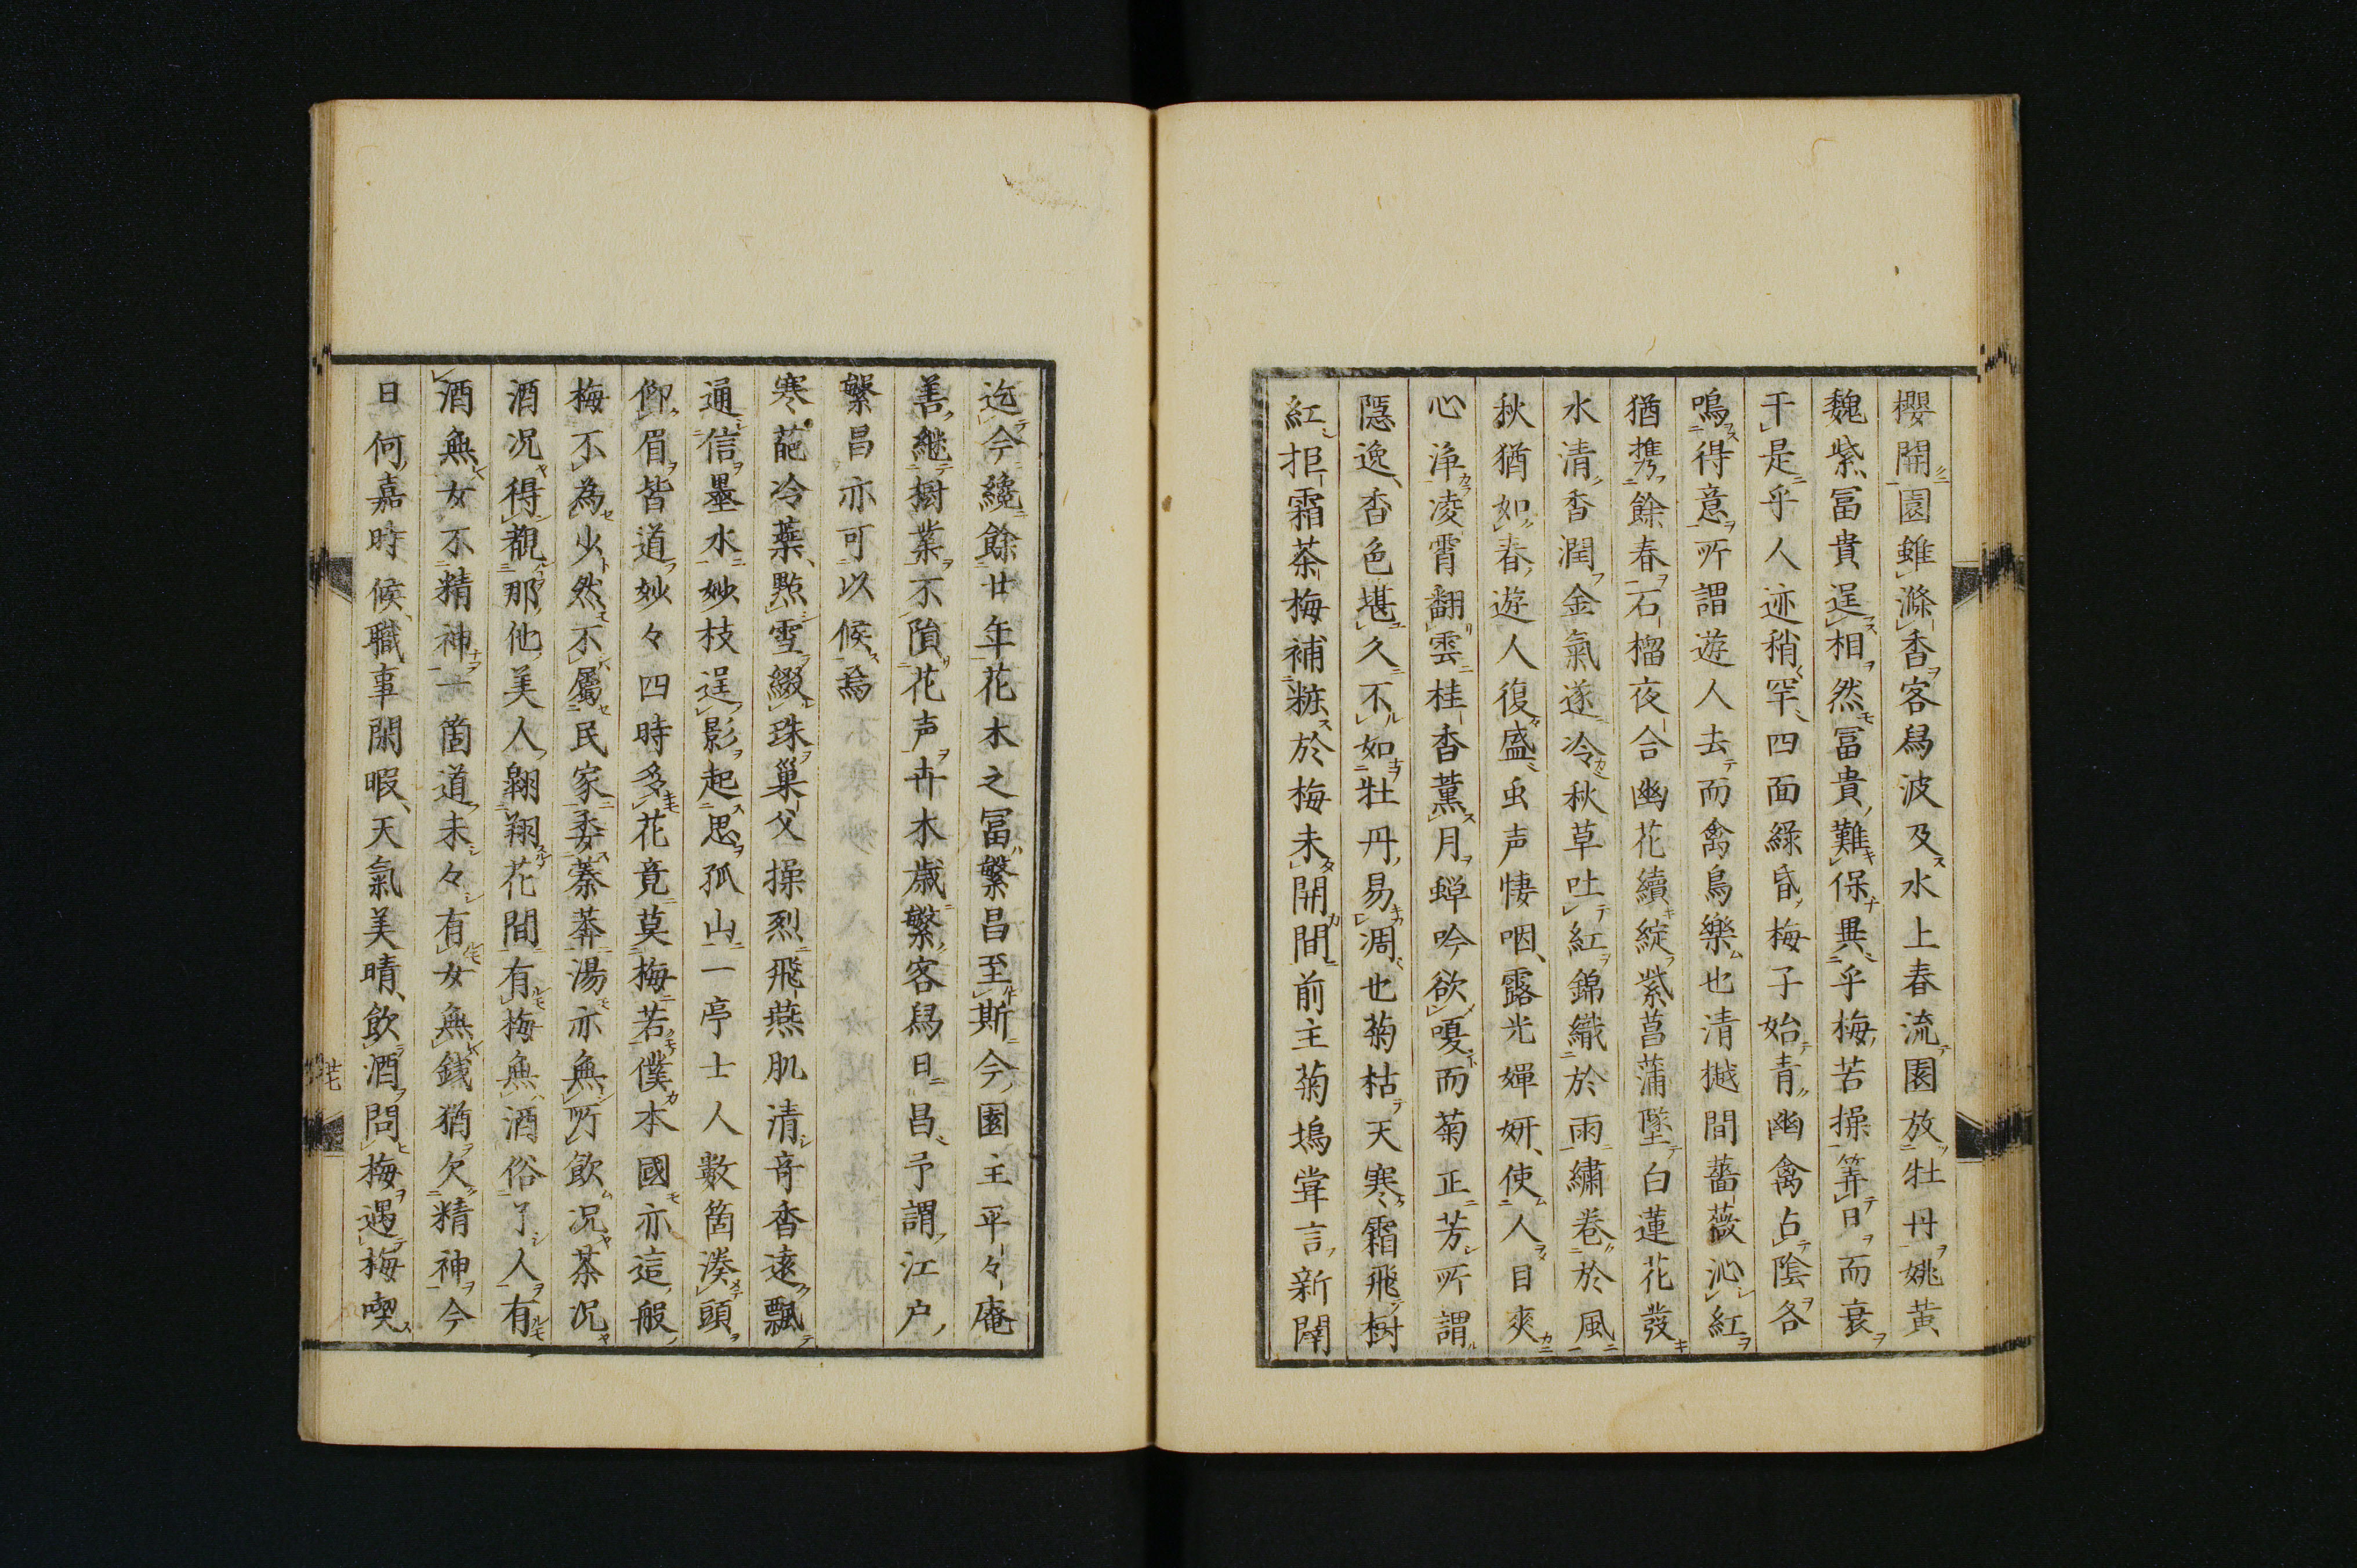 櫻開園雖滌香客舄波及水上春流園放牡丹姚黃
魏紫冨貴逞相然冨貴難保異乎梅苦操筭日而衰
干是乎人迹稍罕四面綠昏梅子始青幽禽占陰各
鳴得意所謂遊人去而禽鳥樂也清樾間薔薇沁紅
猶攜餘春石榴夜合幽花續綻紫菖蒲墜白蓮花發
水清香潤金氣遂冷秋草吐紅錦織於雨繡卷於風
秋猶如春遊人復盛虫声悽咽露光嬋妍使人目爽
心淨凌霄翻雲桂香薰月蟬吟欲嗄而菊正芳所謂
隱逸香色堪久不如牡丹易凋也菊枯天寒霜飛樹
紅拒霜茶梅補粧於梅未開間前主菊塢甞言新開
迄今纔餘廿年花木之冨繁昌至斯今園主平々庵
善継樹業不隕花声卉木歳繁客舄日昌予謂江户
繁昌亦可以候焉
寒葩冷蘂點雪綴珠巢父操烈飛燕肌清竒香遠飄
通信墨水妙枝逞影起思孤山一亭士人數箇湊頭
仰眉皆道妙々四時多花竟莫梅若僕本國亦這般
梅不為少然不屬民家委蓁莽湯亦無所飲况茶况
酒况得覩那他美人翱翔花間有梅無酒俗了人有
酒無女不精神一箇道未々有女無銭猶欠精神今
日何嘉時候職事閑暇天氣美晴飲酒問梅遇梅喫